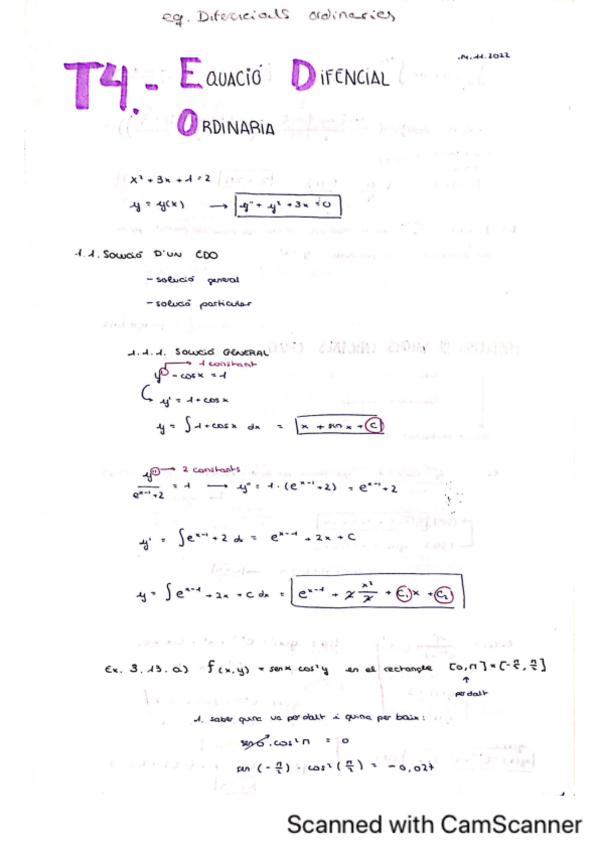 eq. Diferencials ordinaries
14.11.2022
T4.- EQUACIÓ DIFENCIAL
ORDINARIA
x² + 3x + 1 = 2
y = y(x) → y'' + y² + 3x = 0
1.1. SOLUCIÓ D'UN EDO
- solució general
- solució particular
1.1.1. SOLUCIÓ GENERAL
→ 1 constant
y' - cosx = 1
y' = 1 + cosx
y = ∫ 1 + cosx dx = x + sin x + C
→ 2 constants
y''/(eˣ⁻¹+2) = 1 → y'' = 1 · (eˣ⁻¹ + 2) = eˣ⁻¹ + 2
y' = ∫ eˣ⁻¹ + 2 dx = eˣ⁻¹ + 2x + C
y = ∫ eˣ⁻¹ + 2x + C dx = eˣ⁻¹ + 2 x²/2 + C₁x + C₂
Ex. 3.13. a) f(x,y) = senx cos²y en el rectangle [0,π] × [-π/2, π/2]
↑
per dalt
1. saber quina va per dalt i quina per baix:
sen 0 · cos²π = 0
sen (-π/2) · cos² (π/2) = -0,027
Scanned with CamScanner